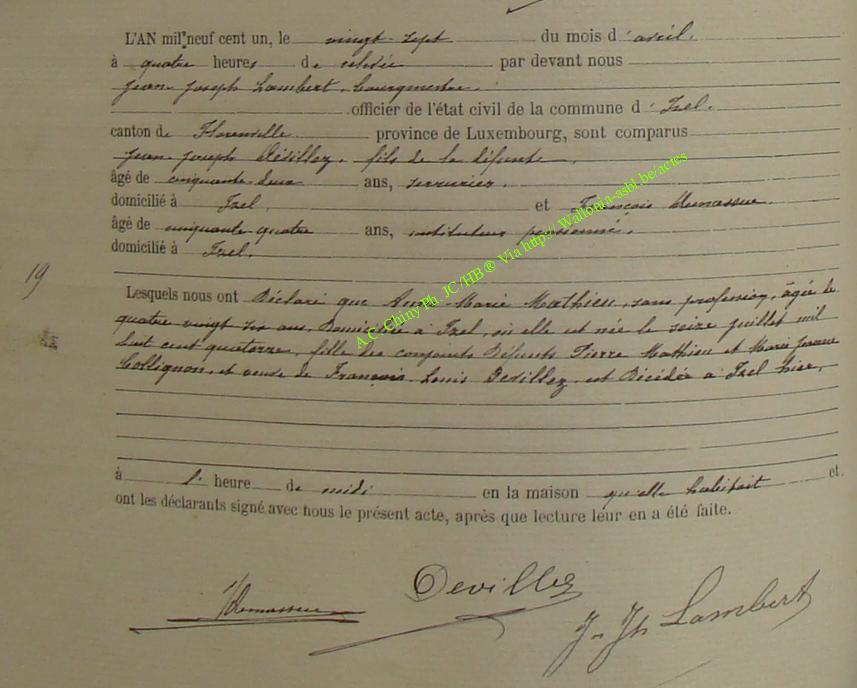 L'AN mil neuf cent un, le vingt-sept du mois d'avril.
à quatre heures de relevée par devant nous
Jean Joseph Lambert, bourgmestre
officier de l'état civil de la commune d'Izel.
canton de Florenville province de Luxembourg, sont comparus
Jean Joseph Devillez, fils de la défunte,
âgé de cinquante deux ans, serrurier.
domicilié à Izel. et François
âgé de cinquante quatre ans, instituteur pensionné,
domicilié à Izel.
19
Lesquels nous ont Déclaré que Anne Marie Mathieu, sans profession, âgée de
quatre vingt six ans, Domiciliée à Izel, où elle est née le seize juillet mil
huit cent quatorze, fille des conjoints Défunts Pierre Mathieu et Marie Jeanne
Collignon, et veuve de François Louis Devillez, est Décédée à Izel hier,
à l'heure de midi en la maison qu'elle habitait et
ont les déclarants signé avec nous le présent acte, après que lecture leur en a été faite.
Devillez
J. Jh Lambert
A.C. Chiny Ph. JC/HB ® Via http://Wallonia-asbl.be/actes